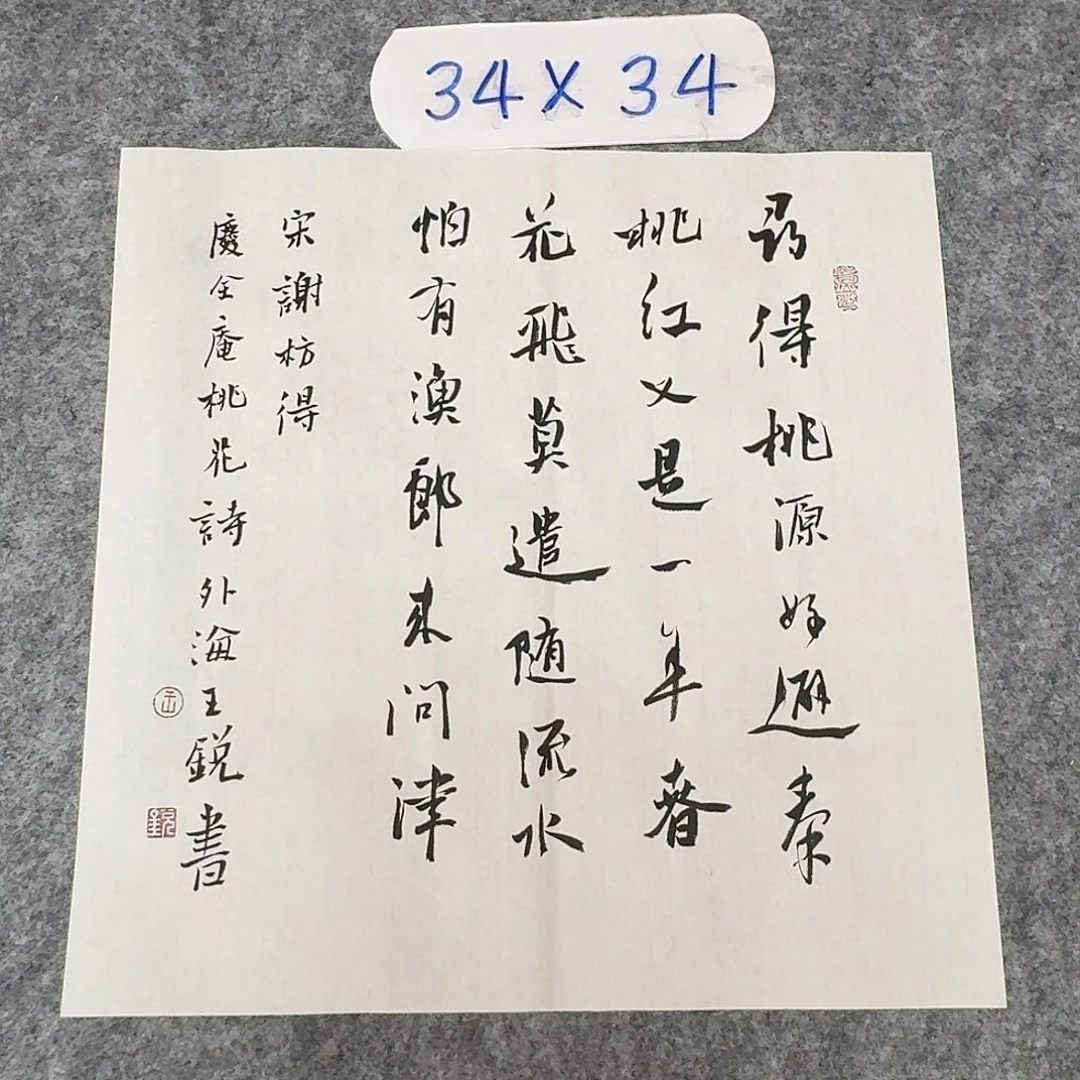 34×34
尋得桃源好避秦
桃红又是一年春
花飛莫遣随流水
怕有渔郎来问津
宋謝枋得
慶全庵桃花詩外海王銳書